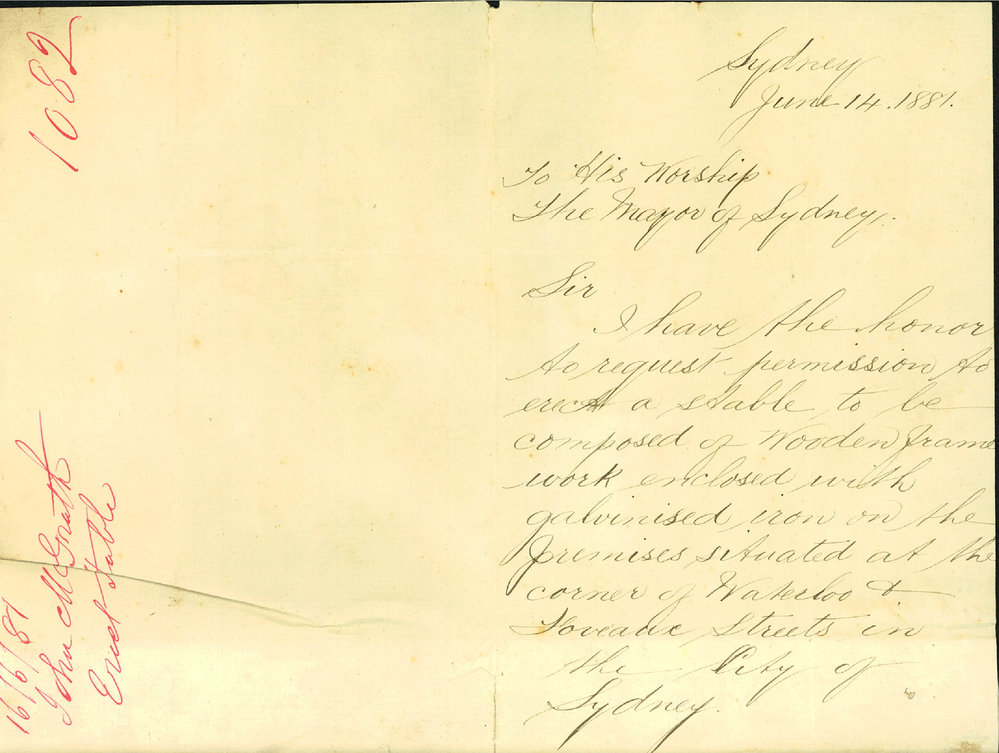 1082
16/6/81
John McGrath
Erect Stable
Sydney
June 14. 1881.
To His Worship
The Mayor of Sydney.
Sir
I have the honor
to request permission to
erect a stable to be
composed of Wooden frame
work enclosed with
galvinised iron on the
premises situated at the
corner of Waterloo &
Foveaux Streets in
the City of
Sydney.